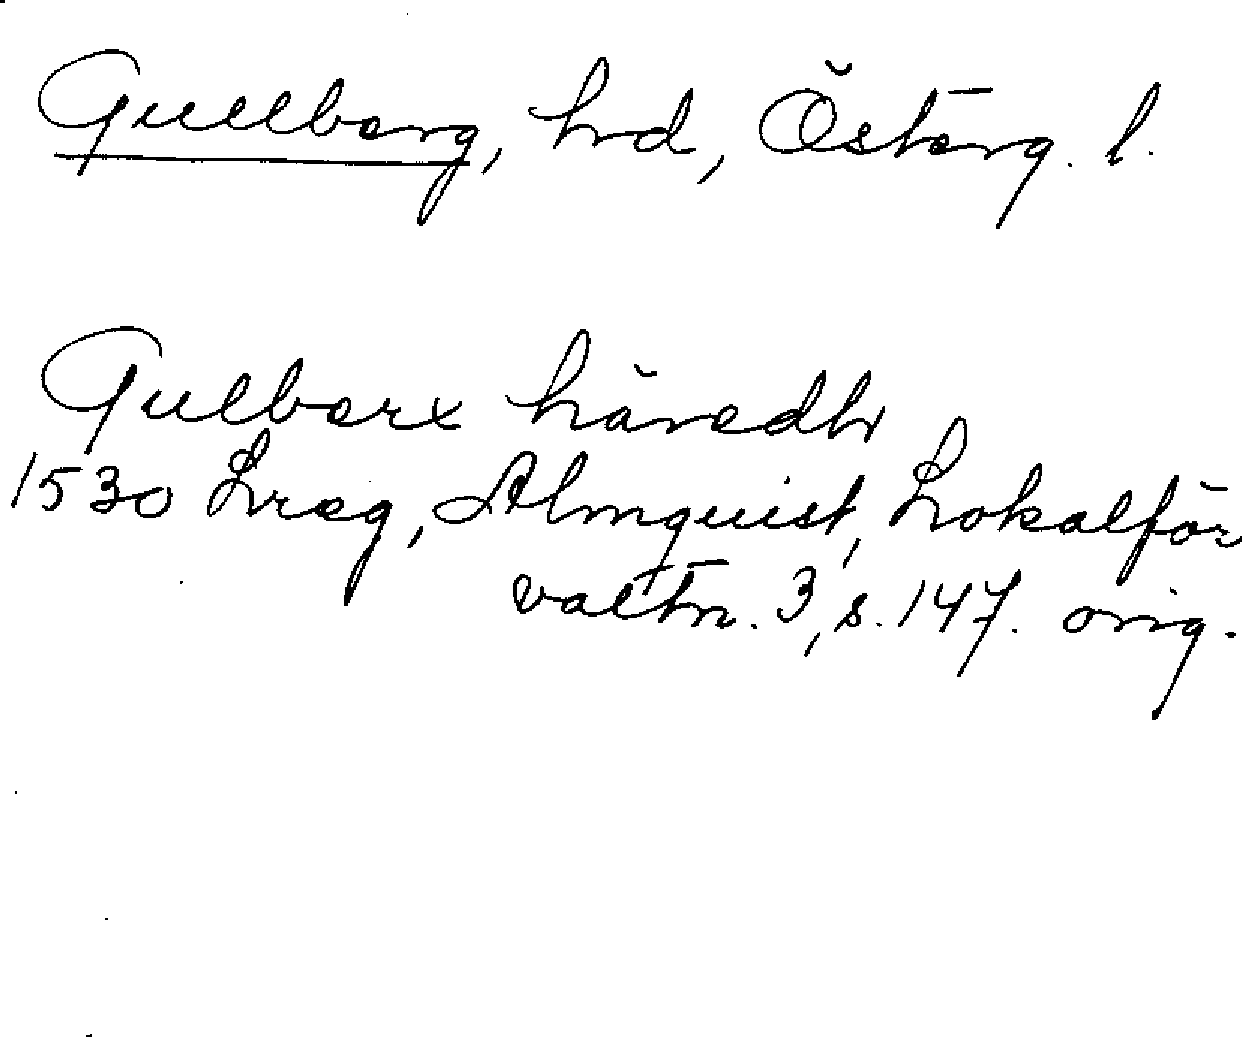 Gullberg, hrd, Österg. l.
Gulberx häredh
1530 Lreg, Almquist, Lokalför
valtn. 3, s. 147. orig.